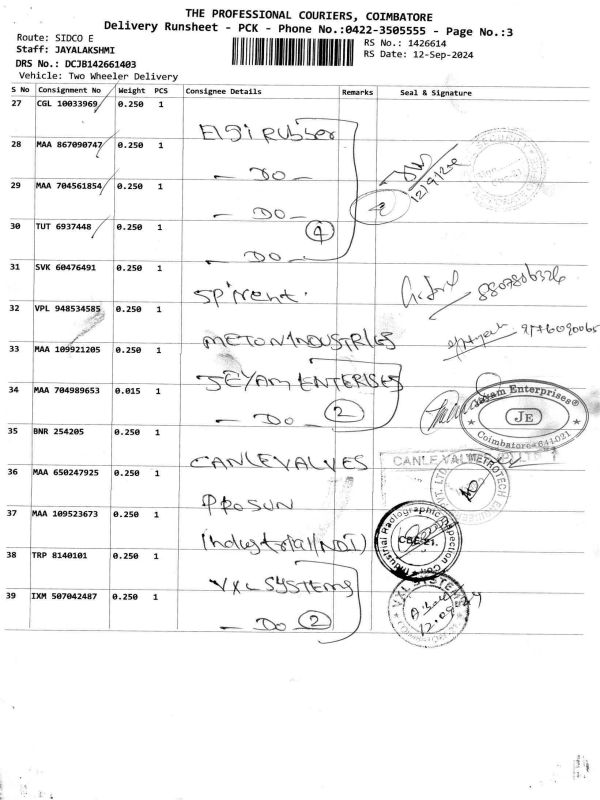 THE PROFESSIONAL COURIERS, COIMBATORE
Delivery Runsheet - PCK - Phone No.:0422-3505555 - Page No.:3
Route: SIDCO E
RS No.: 1426614
Staff: JAYALAKSHMI
RS Date: 12-Sep-2024
DRS No.: DCJB142661403
Vehicle: Two Wheeler Delivery
S No Consignment No Weight PCS Consignee Details Remarks Seal & Signature
27 CGL 10033969 0.250 1
Elgi Rubber
28 MAA 867090747 0.250 1
- DO -
29 MAA 704561854 0.250 1
- DO -
30 TUT 6937448 0.250 1
4
- DO -
31 SVK 60476491 0.250 1
Spirent.
32 VPL 948534585 0.250 1
METON INDUSTRIES
33 MAA 109921205 0.250 1
JEYAM ENTERISES
34 MAA 704989653 0.015 1
- DO - 2
Jeyam Enterprises®
JE
Coimbatore-641 021
35 BNR 254205 0.250 1
CANLEVALVES
CANLE VAL
36 MAA 650247925 0.250 1
PROSUN
37 MAA 109523673 0.250 1
Industrial (NDI)
Industrial Radiographic Inspection
CBE-21.
38 TRP 8140101 0.250 1
VXL SYSTEMS
VXL SYSTEMS
39 IXM 507042487 0.250 1
- DO 2